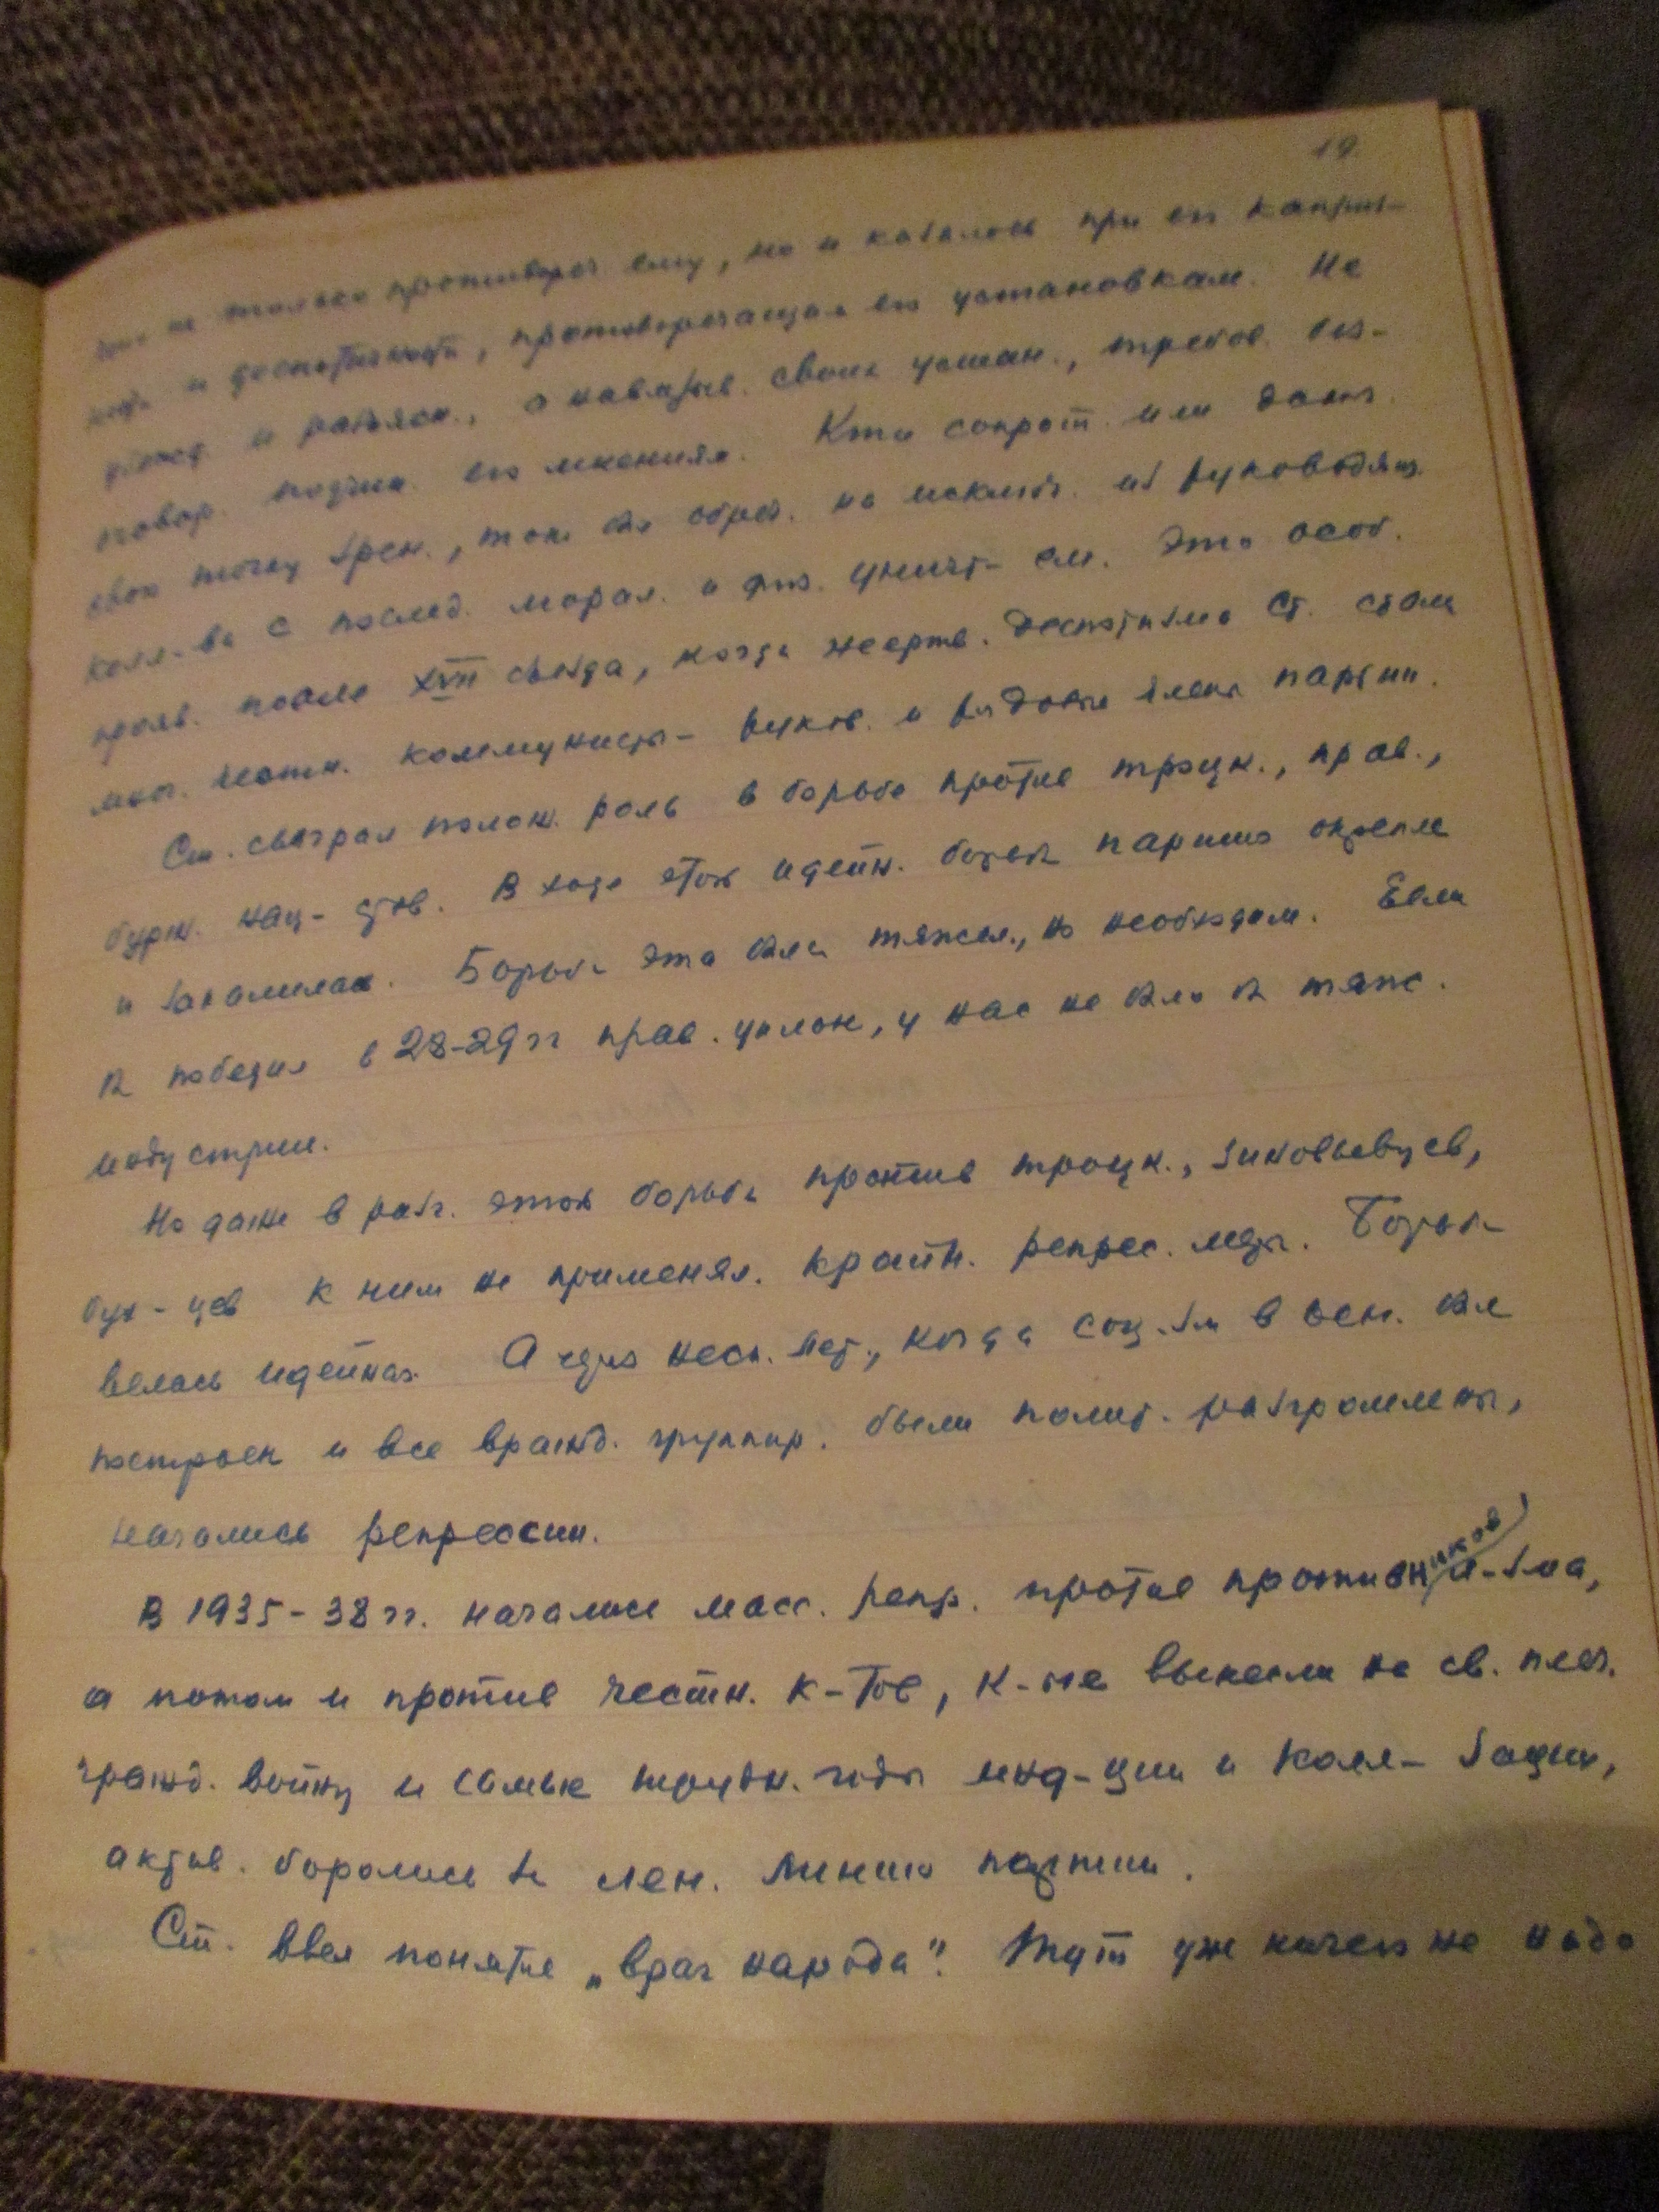 19
не только противореч. ему, но и казалось при его каприз-
и деспотичности, противоречащим его установкам. Не
убежд. и разъясн., а навязыв. своих устан., требов. без-
оговор. подчин. его мнению. Кто сопрот. или доказ.
свою точку зрен., тот был обреч. на исключ. из руководящ.
колл-ва с послед. морал. и физ. уничт-ем. Это особ.
прояв. после XVII съезда, когда жертв. деспотизма Ст. стали
мног. честн. коммунисты - руков. и рядовые члены партии.
Ст. сыграл полож. роль в борьбе против троцк., прав.,
бурж. нац-стов. В ходе этой идейн. борьбы партия окрепла
и закалилась. Борьба эта была тяжел., но необходим. Если
б победил в 28-29 гг прав. уклон, у нас не было б тяж.
индустрии.
Но даже в разг. этой борьбы против троцк., зиновьевцев,
бух-цев к ним не применял. крайн. репрес. меры. Борьба
велась идейная. А через неск. лет, когда соц-зм в осн. был
построен и все вражд. группир. были полит. разгромлены,
начались репрессии.
В 1935-38 гг. начались масс. репр. против противников л-зма,
а потом и против честн. к-тов, к-ые вынесли на св. плеч.
гражд. войну и самые трудн. годы инд-ции и колл-зации,
актив. боролись за лен. линию партии.
Ст. ввел понятие „враг народа". Тут уже ничего не надо